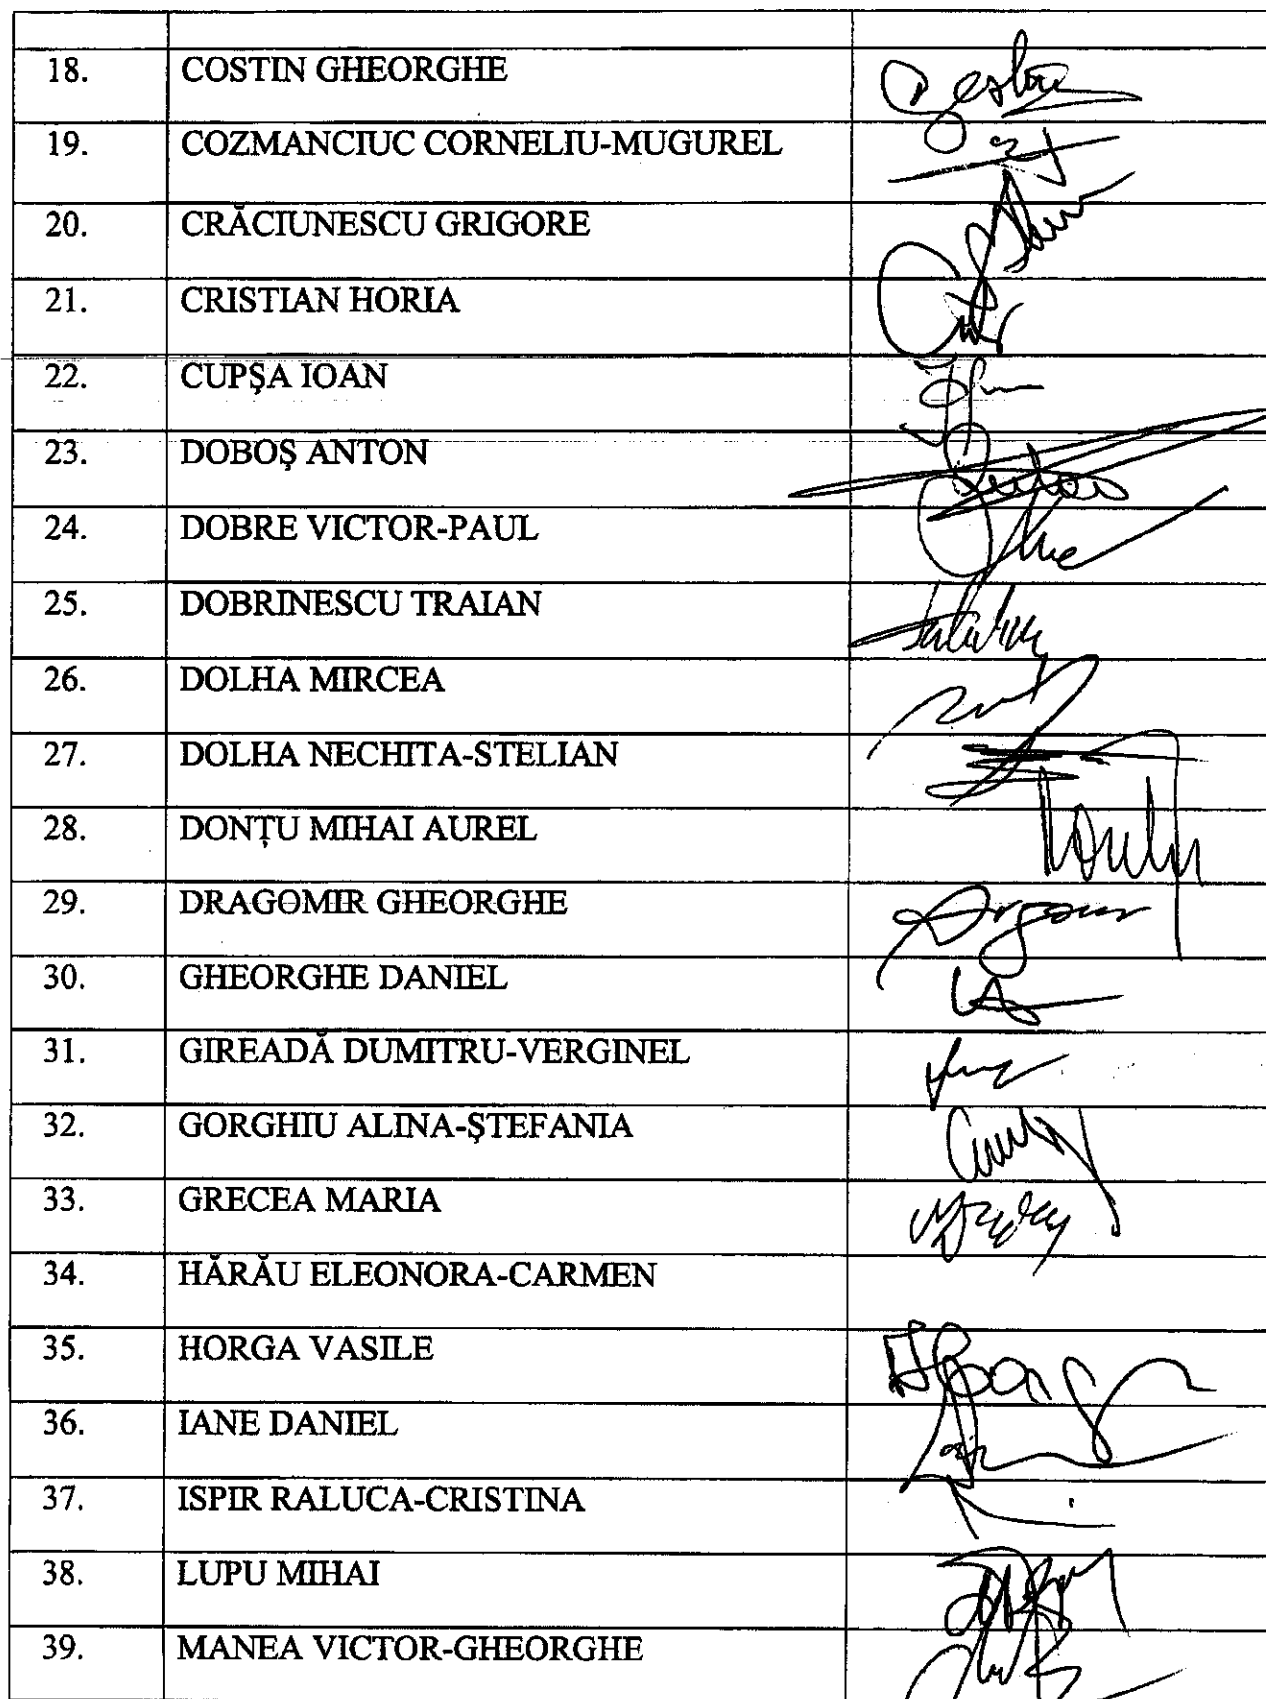 18. COSTIN GHEORGHE
19. COZMANCIUC CORNELIU-MUGUREL
20. CRĂCIUNESCU GRIGORE
21. CRISTIAN HORIA
22. CUPŞA IOAN
23. DOBOŞ ANTON
24. DOBRE VICTOR-PAUL
25. DOBRINESCU TRAIAN
26. DOLHA MIRCEA
27. DOLHA NECHITA-STELIAN
28. DONŢU MIHAI AUREL
29. DRAGOMIR GHEORGHE
30. GHEORGHE DANIEL
31. GIREADĂ DUMITRU-VERGINEL
32. GORGHIU ALINA-ŞTEFANIA
33. GRECEA MARIA
34. HĂRĂU ELEONORA-CARMEN
35. HORGA VASILE
36. IANE DANIEL
37. ISPIR RALUCA-CRISTINA
38. LUPU MIHAI
39. MANEA VICTOR-GHEORGHE